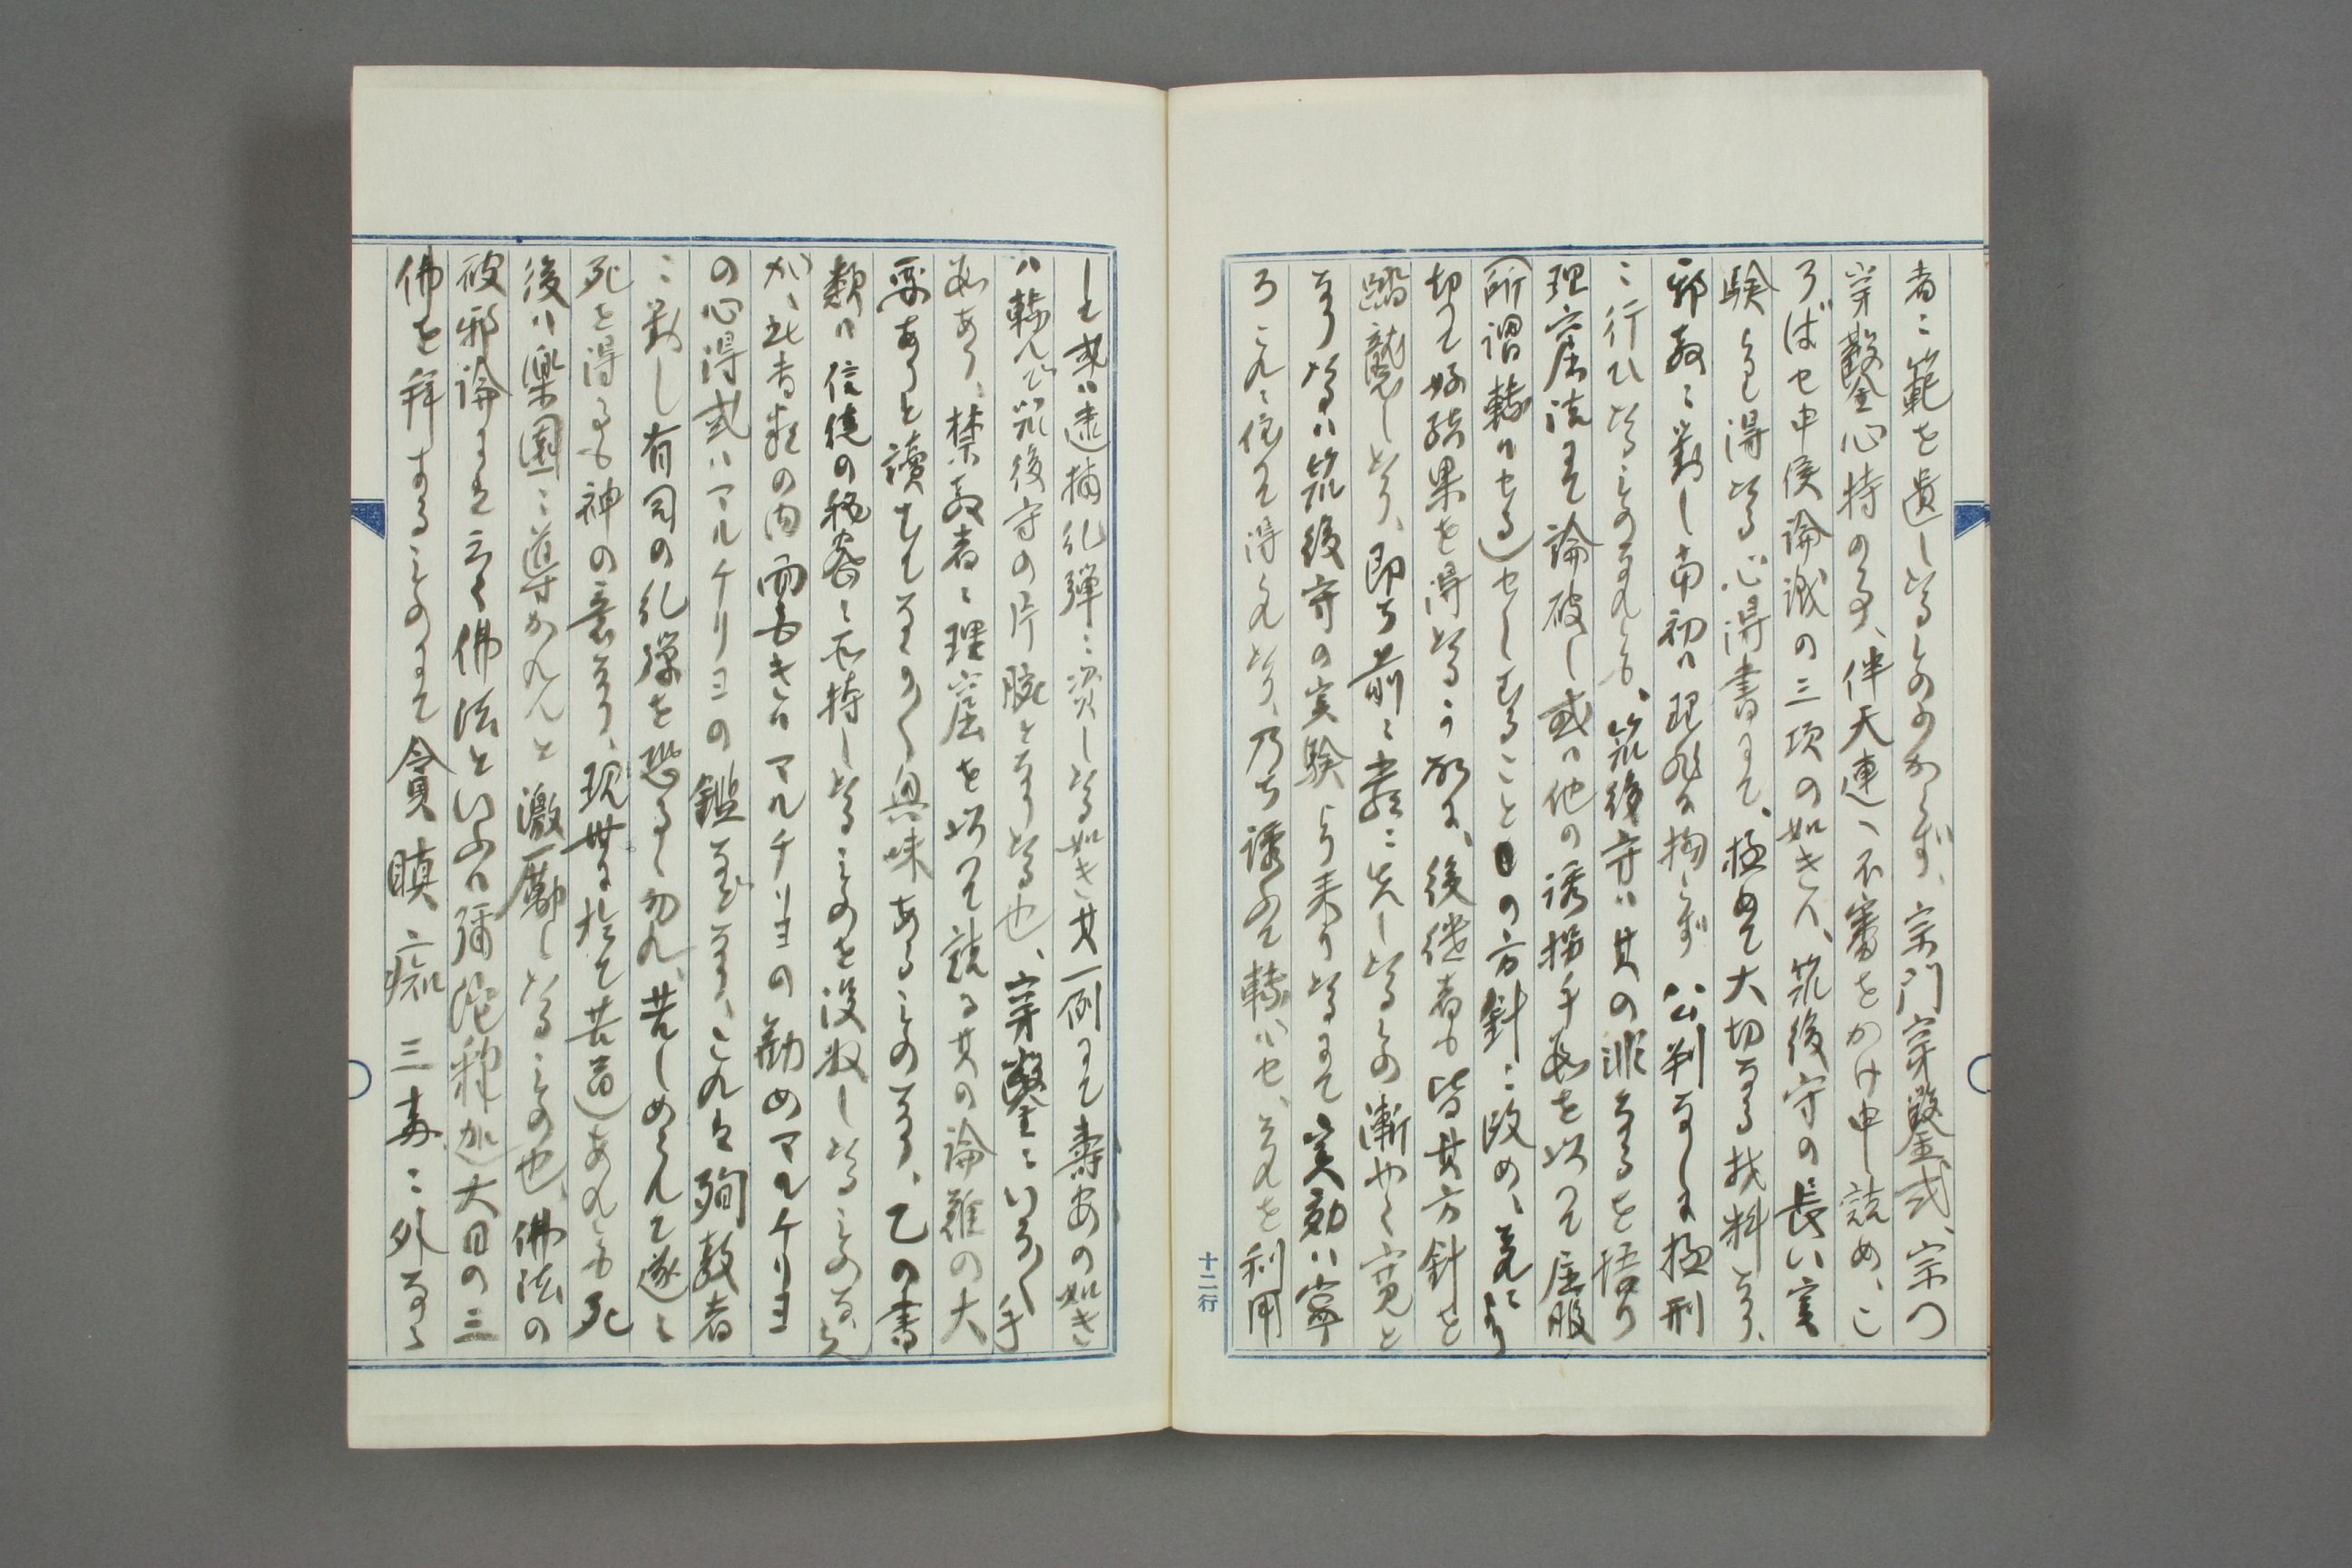 者ニ範を遺しゝるものゝみからず、宗門穿鑿式、宗門
穿鑿心持の事、伴天連へ不審をかけ申詰め、こ
ろばせ申侯論議の三項の如きハ、筑後守の長い実
験より得ゝる心得書にて、極めて大切なる材料なり、
邪教ニ對し当初ハ理非に拘らず公判なしに極刑
ニ行ひゝるものなれとも、筑後守ハ其の非なるを悟り
理窟詰にて論破し或ハ他の誘拐手段を以つて屈服
(所謂轉ハせる)せしむることの方針ニ改め、之れにより
切りに好結果を得ゝる故に、後継者も皆其方針を
踏襲しゝり、即ち前ニ嚴ニ失しゝるもの漸やく寛と
なりゝるハ筑後守の実験より来りゝるにて実効ハ寧
ろこれニ依て得られゝり、乃ち誘ふて轉ハせ、之れを利用
して或ハ逮捕糺弾ニ資しゝる如き其一例にて壽安の如き
ハ轉んで筑後守の片腕となりゝる也、穿鑿ニいろ〱手
段あり、禁教者ニ理窟を以つて詰る其の論難の大
要ありと讀むもなか〱興味あるものなり、乙の書
類ハ信徒の秘密ニ所持しゝるものを没収しゝるものならん
か、此書類の内 面白きハマルチリヨの勧めマルチリヨ
の心得或ハマルチリヨの鑑などなり、これは殉教者
ニ對し有司の糺弾を恐るゝ勿れ、苦しめられて遂ニ
死を得るも神の意なり、現世に於て苦(音)あれとも死
後ハ楽園ニ導かれんと激励しゝるもの也、佛法の
破邪論にも云く佛法といふハ彌陀釋迦大日の三
佛を拜するものにて貪瞋痴三毒ニ外なら
十二行